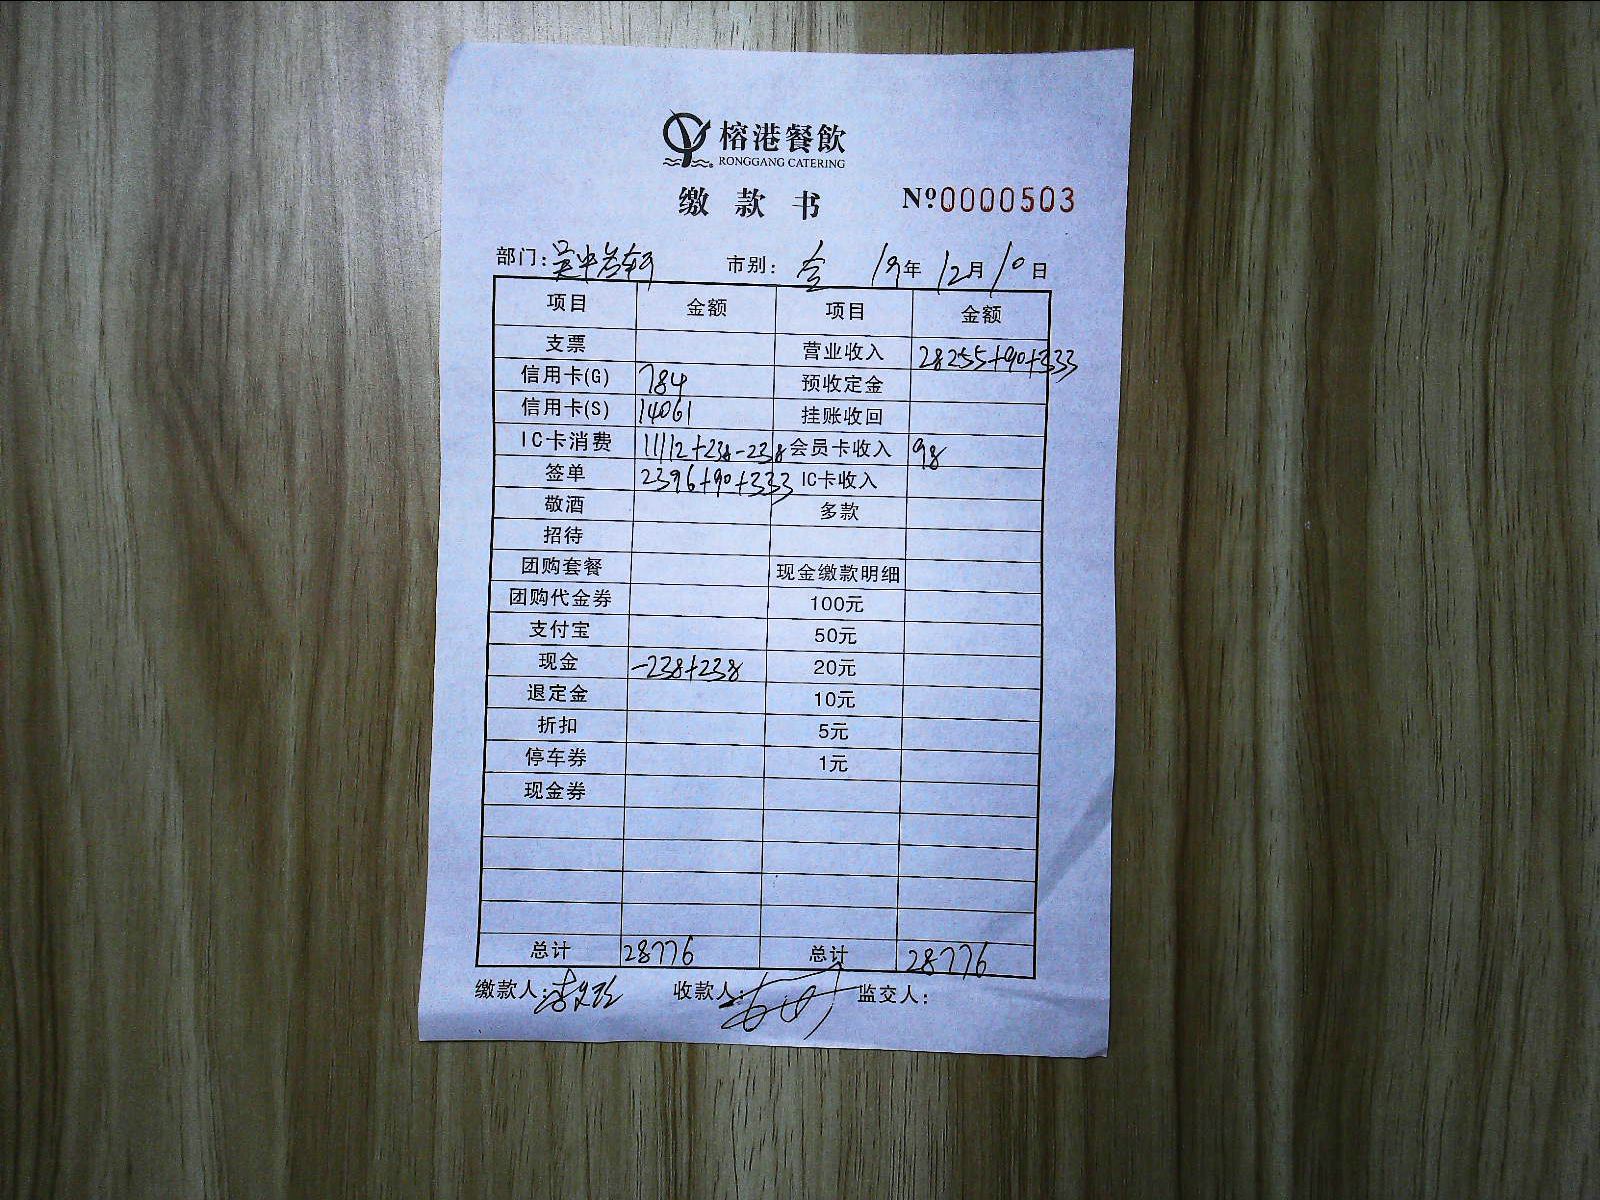 榕港餐飲
RONGGANG CATERING
缴款书 Nº0000503
部门：吴中 市别：全 19年12月10日
项目 金额 项目 金额
支票 营业收入 28255+90+333
信用卡(G) 784 预收定金
信用卡(S) 14061 挂账收回
IC卡消费 11112+238-238 会员卡收入 98
签单 2396+90+333 IC卡收入
敬酒 多款
招待
团购套餐 现金缴款明细
团购代金券 100元
支付宝 50元
现金 -238+238 20元
退定金 10元
折扣 5元
停车券 1元
现金券
总计 28776 总计 28776
缴款人： 收款人： 监交人：